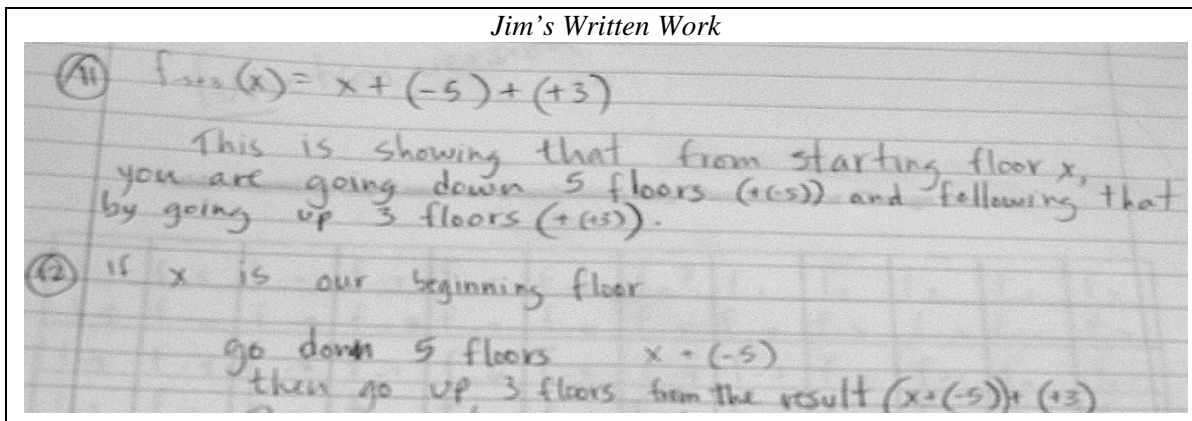 Jim's Written Work
11 f (x) = x + (-5) + (+3)
This is showing that from starting floor x,
you are going down 5 floors (+(-5)) and following that
by going up 3 floors (+(+3)).
12 if x is our beginning floor
go down 5 floors x + (-5)
then go up 3 floors from the result (x+(-5))+ (+3)